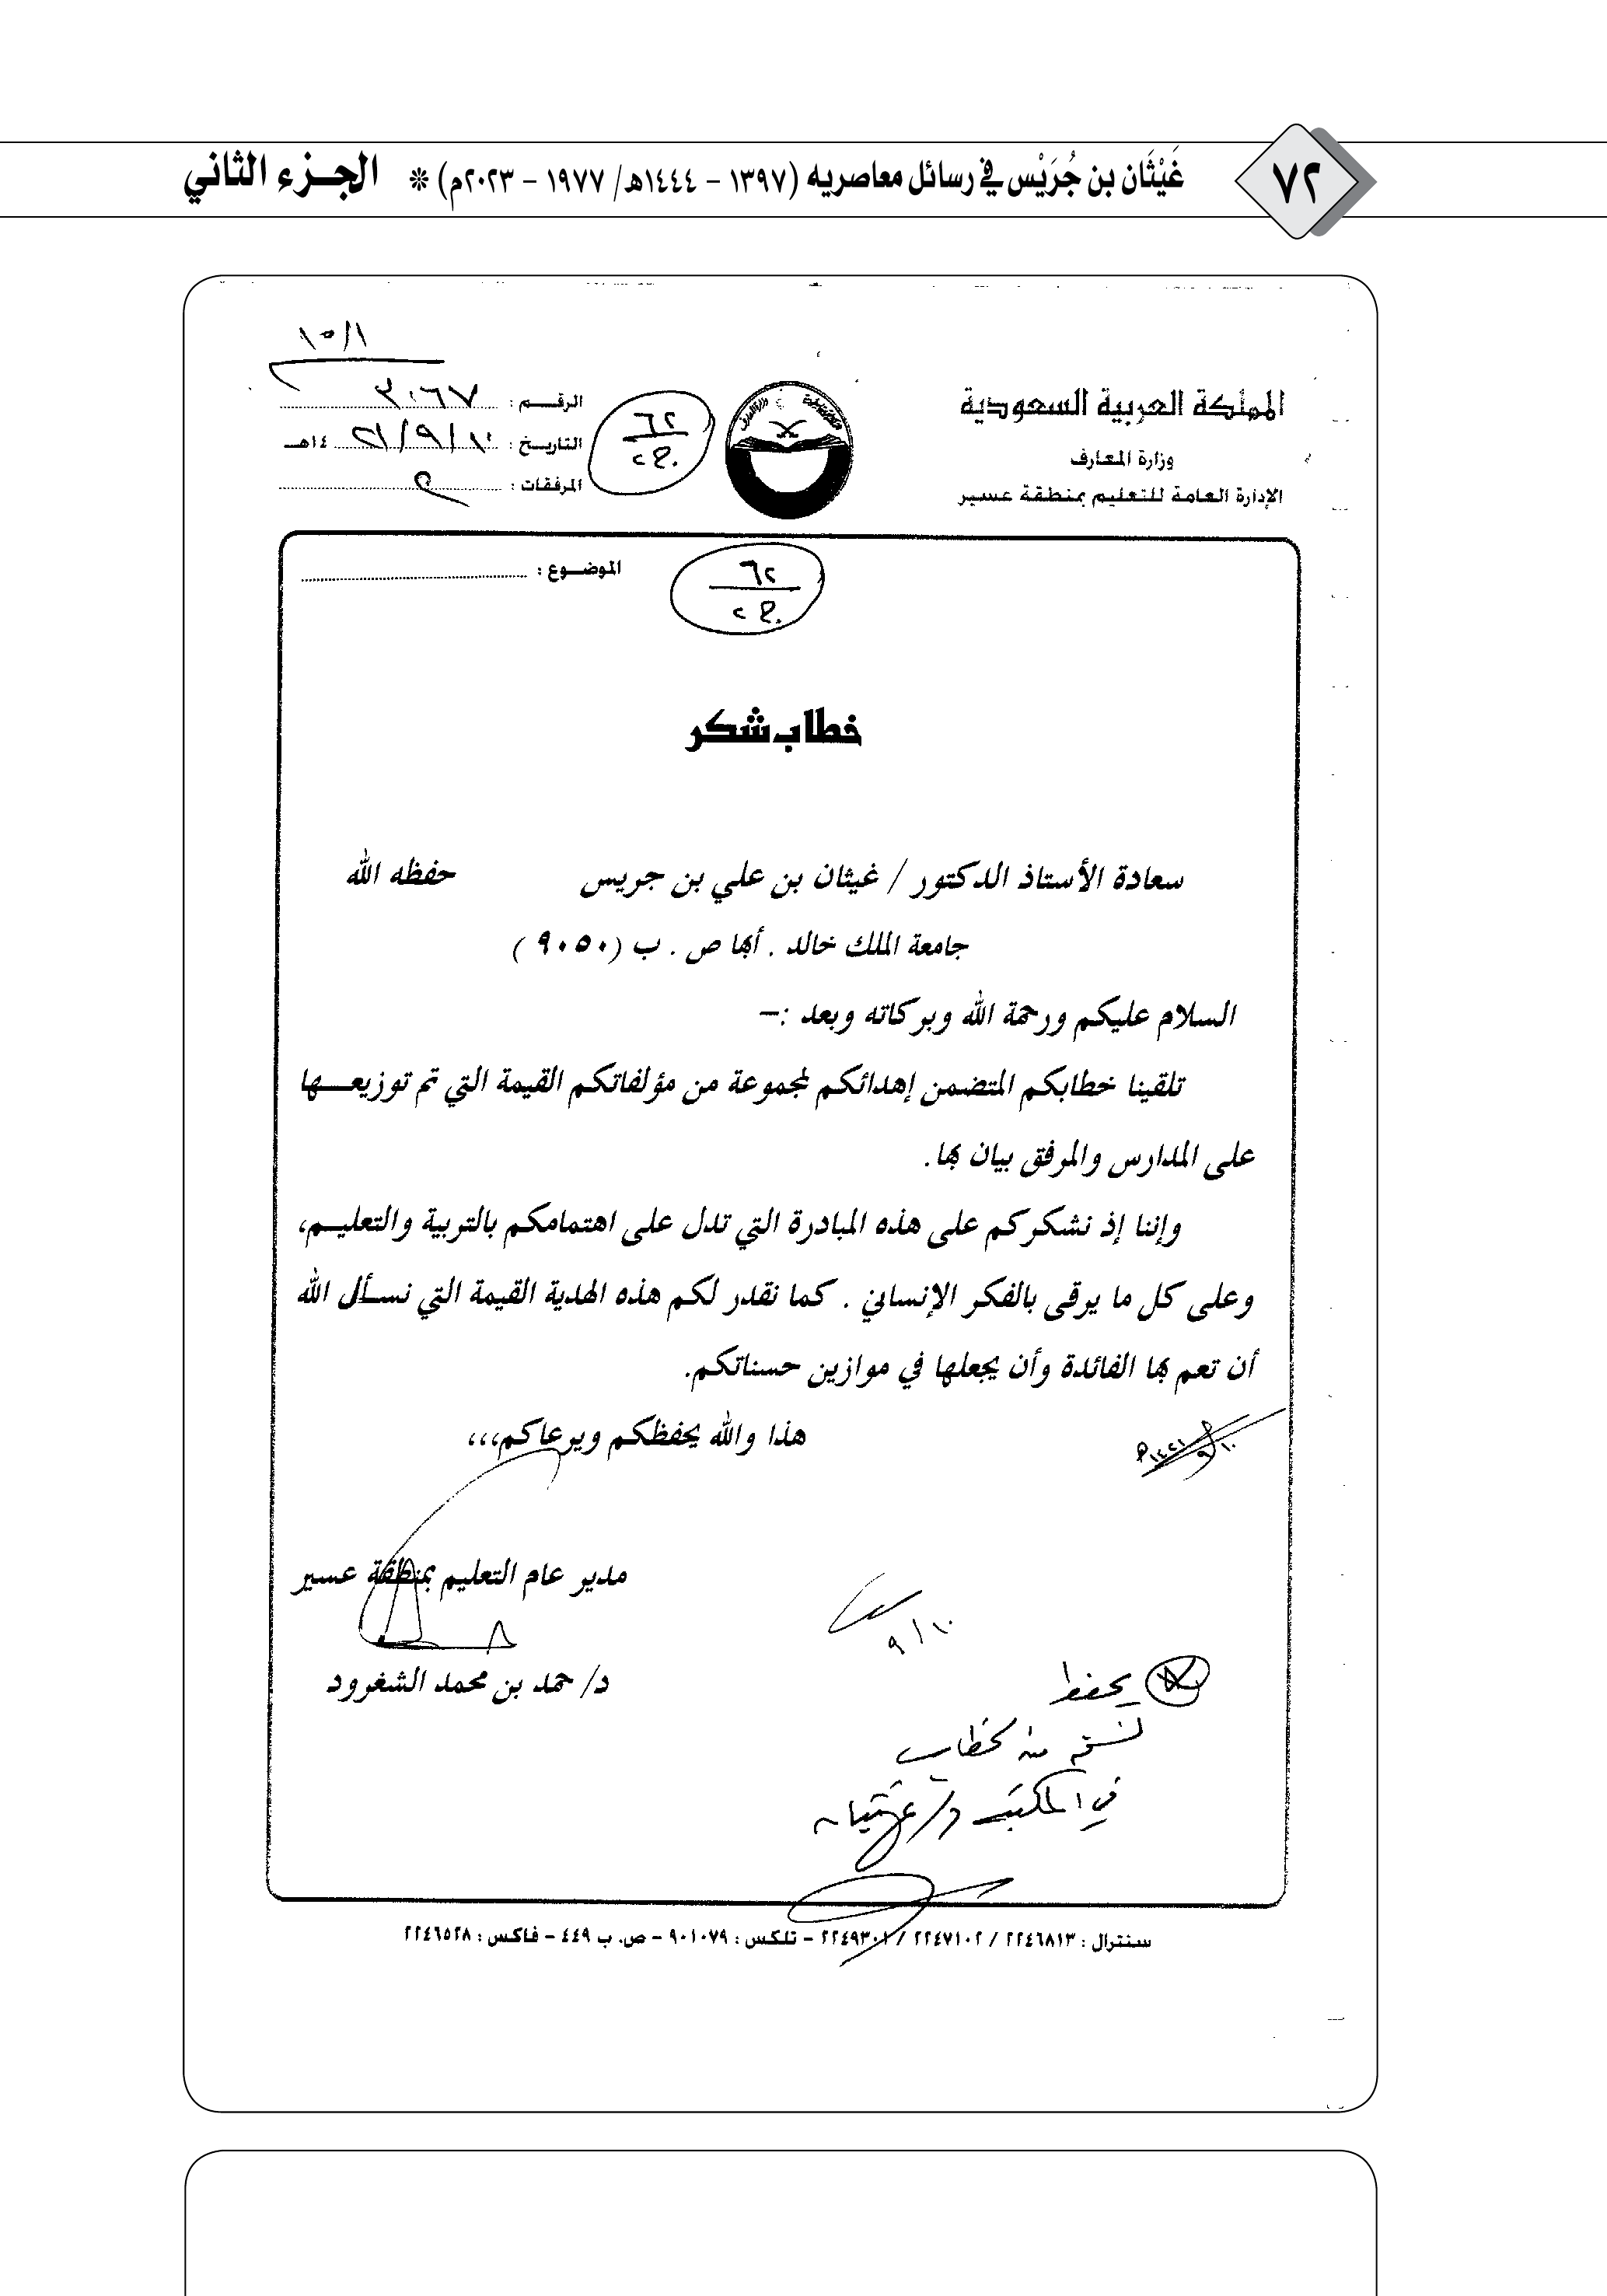 ٧٢
غَيْثَان بن جُرَيْس في رسائل معاصريه (١٣٩٧ - ١٤٤٤هـ/ ١٩٧٧ - ٢٠٢٣م) * الجزء الثاني
١٥/١
المملكة العربية السعودية
وزارة المعارف
الإدارة العامة للتعليم بمنطقة عسير
الرقم :
التاريخ : ١٠/٩/٢١ ١٤هـ
المرفقات :
٦٢
الموضوع :
٦٢
خطاب شكر
سعادة الأستاذ الدكتور / غيثان بن علي بن جريس حفظه الله
جامعة الملك خالد . أبها ص . ب (٩٠٥٠)
السلام عليكم ورحمة الله وبركاته وبعد :-
تلقينا خطابكم المتضمن إهدائكم لمجموعة من مؤلفاتكم القيمة التي تم توزيعها
على المدارس والمرفق بيان بها.
وإننا إذ نشكركم على هذه المبادرة التي تدل على اهتمامكم بالتربية والتعليم،
وعلى كل ما يرقى بالفكر الإنساني . كما نقدر لكم هذه الهدية القيمة التي نسأل الله
أن تعم بها الفائدة وأن يجعلها في موازين حسناتكم.
هذا والله يحفظكم ويرعاكم،،،
مدير عام التعليم بمنطقة عسير
٩/١٠
د/ حمد بن محمد الشغرود
يحفظ
نسخة من خطاب
في المكتبة د/ غيثان
سنترال : ٢٢٤٦٨١٣ / ٢٢٤٧١٠٢ / ٢٢٤٩٣٠١ - تلكس : ٩٠١٠٧٩ - ص. ب ٤٤٩ - فاكس : ٢٢٤٦٥٢٨